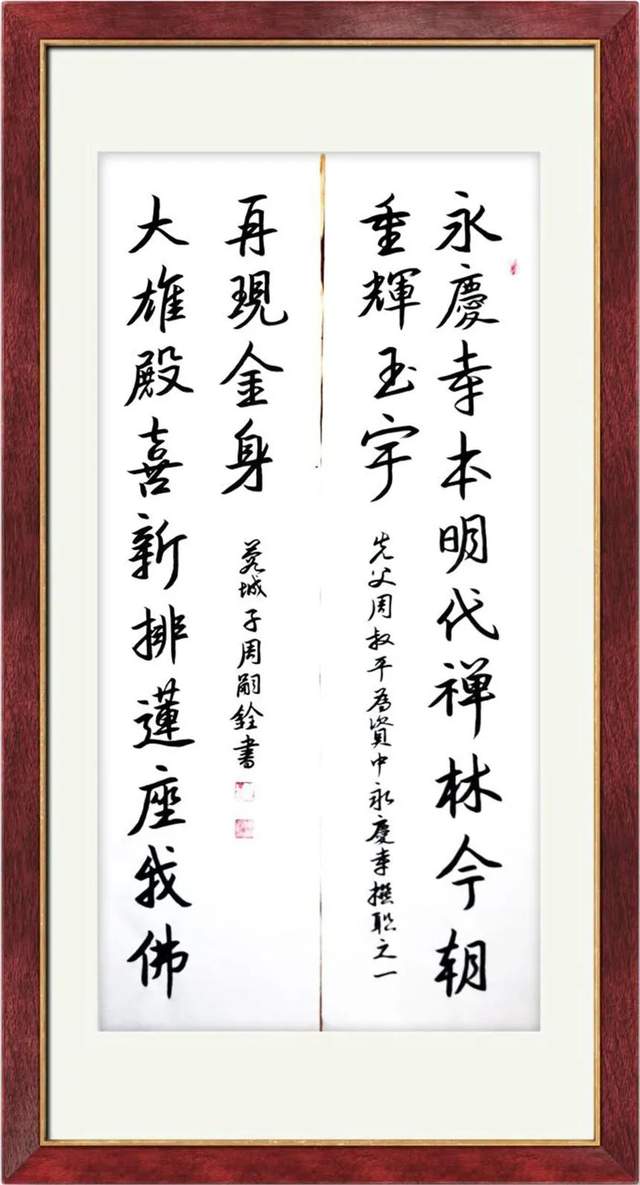 永慶寺本明代禅林今朝
重輝玉宇
先父周叔平為資中永慶寺撰联之一
大雄殿喜新排蓮座我佛
再現金身
蓉城子周嗣銓書